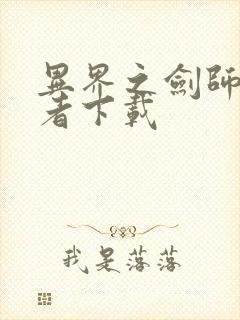 異界之劍師
者下載
我是落落